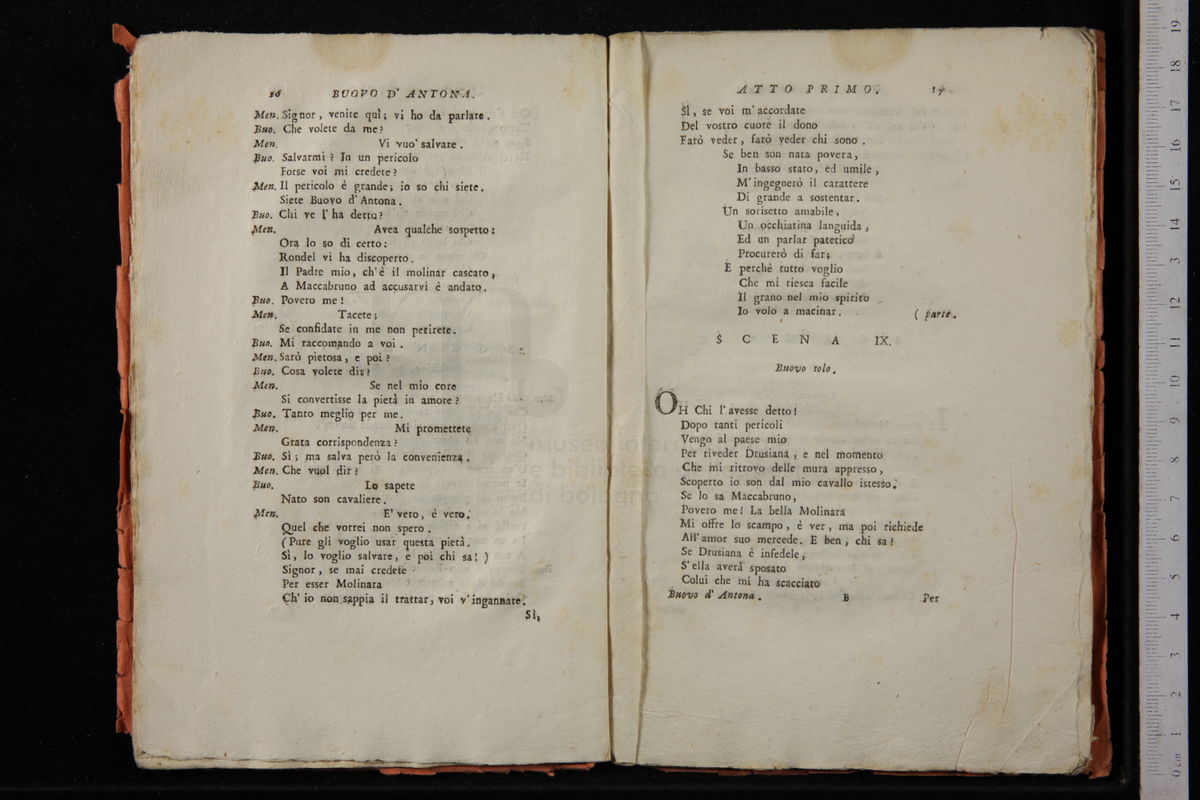 16 BUOVO D' ANTONA.
Men. Signor, venite quì; vi ho da parlare.
Buo. Che volete da me?
Men. Vi vuo' salvare.
Buo. Salvarmi? In un pericolo
Forse voi mi credete?
Men. Il pericolo è grande; io so chi siete.
Siete Buovo d'Antona.
Buo. Chi ve l'ha detto?
Men. Avea qualche sospetto:
Ora lo so di certo:
Rondel vi ha discoperto.
Il Padre mio, ch'è il molinar cascato,
A Maccabruno ad accusarvi è andato.
Buo. Povero me!
Men. Tacete;
Se confidate in me non perirete.
Buo. Mi raccomando a voi.
Men. Sarò pietosa, e poi?
Buo. Cosa volete dir?
Men. Se nel mio core
Si convertisse la pietà in amore?
Buo. Tanto meglio per me.
Men. Mi promettete
Grata corrispondenza?
Buo. Sì; ma salva però la convenienza.
Men. Che vuol dir?
Buo. Lo sapete
Nato son cavaliere.
Men. E' vero, è vero.
Quel che vorrei non spero.
(Pure gli voglio usar questa pietà.
Sì, lo voglio salvare, e poi chi sa! )
Signor, se mai credete
Per esser Molinara
Ch' io non sappia il trattar, voi v'ingannate.
Sì,
ATTO PRIMO. 17
Sì, se voi m'accordate
Del vostro cuore il dono
Farò veder, farò veder chi sono.
Se ben son nata povera,
In basso stato, ed umile,
M'ingegnerò il carattere
Di grande a sostentar.
Un sorisetto amabile,
Un occhiatina languida,
Ed un parlar patetico
Procurerò di far;
E perchè tutto voglio
Che mi riesca facile
Il grano nel mio spirito
Io volo a macinar. ( parte.
SCENA IX.
Buovo solo.
OH Chi l'avesse detto!
Dopo tanti pericoli
Vengo al paese mio
Per riveder Drusiana, e nel momento
Che mi ritrovo delle mura appresso,
Scoperto io son dal mio cavallo istesso.
Se lo sa Maccabruno,
Povero me! La bella Molinara
Mi offre lo scampo, è ver, ma poi richiede
All'amor suo mercede. E ben, chi sa?
Se Drusiana è infedele,
S'ella averà sposato
Colui che mi ha scacciato
Buovo d' Antona. B Per